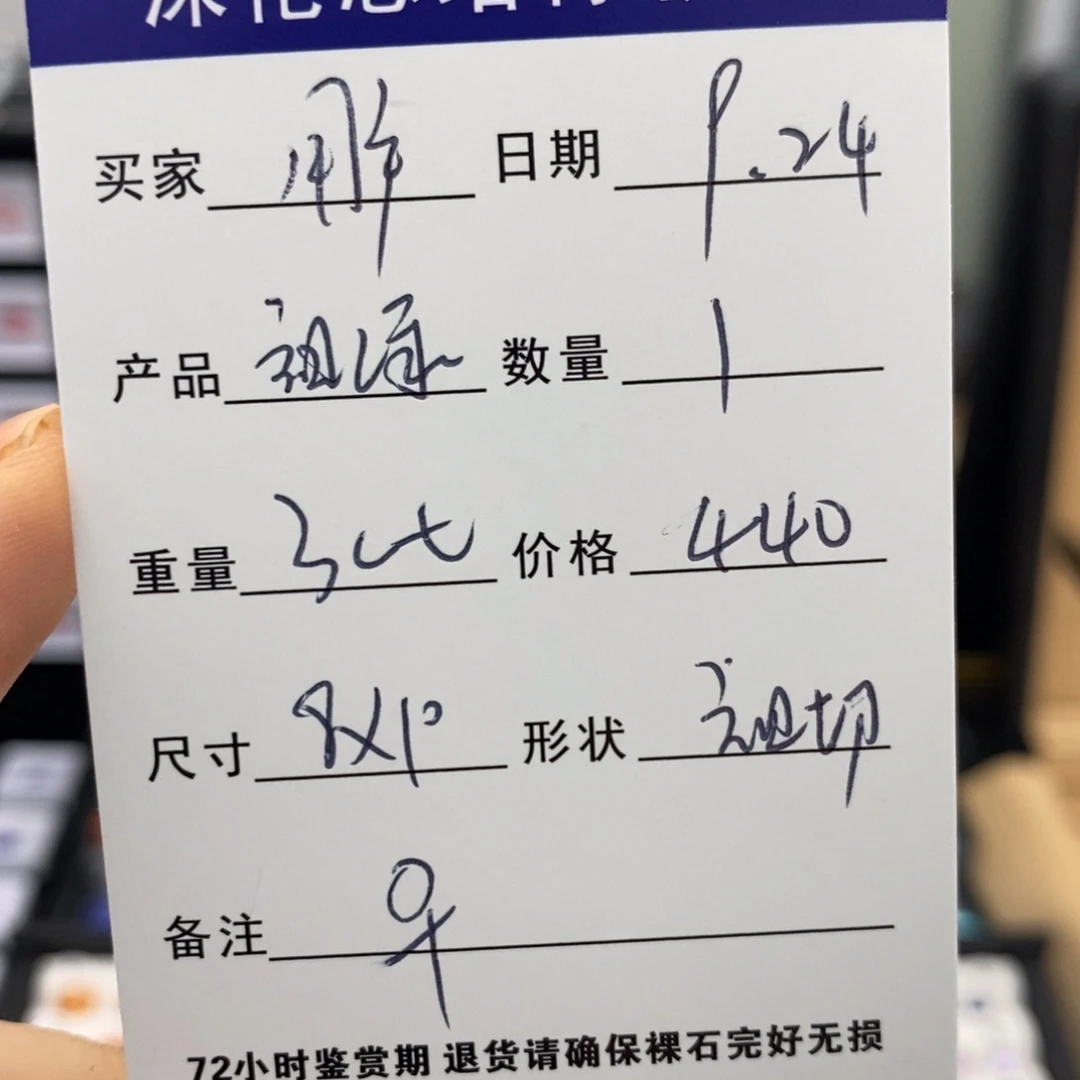 买家 日期 9.24
产品 祖源 数量 1
重量 3ct 价格 440
尺寸 8X10 形状 祖切
备注
72小时鉴赏期 退货请确保裸石完好无损